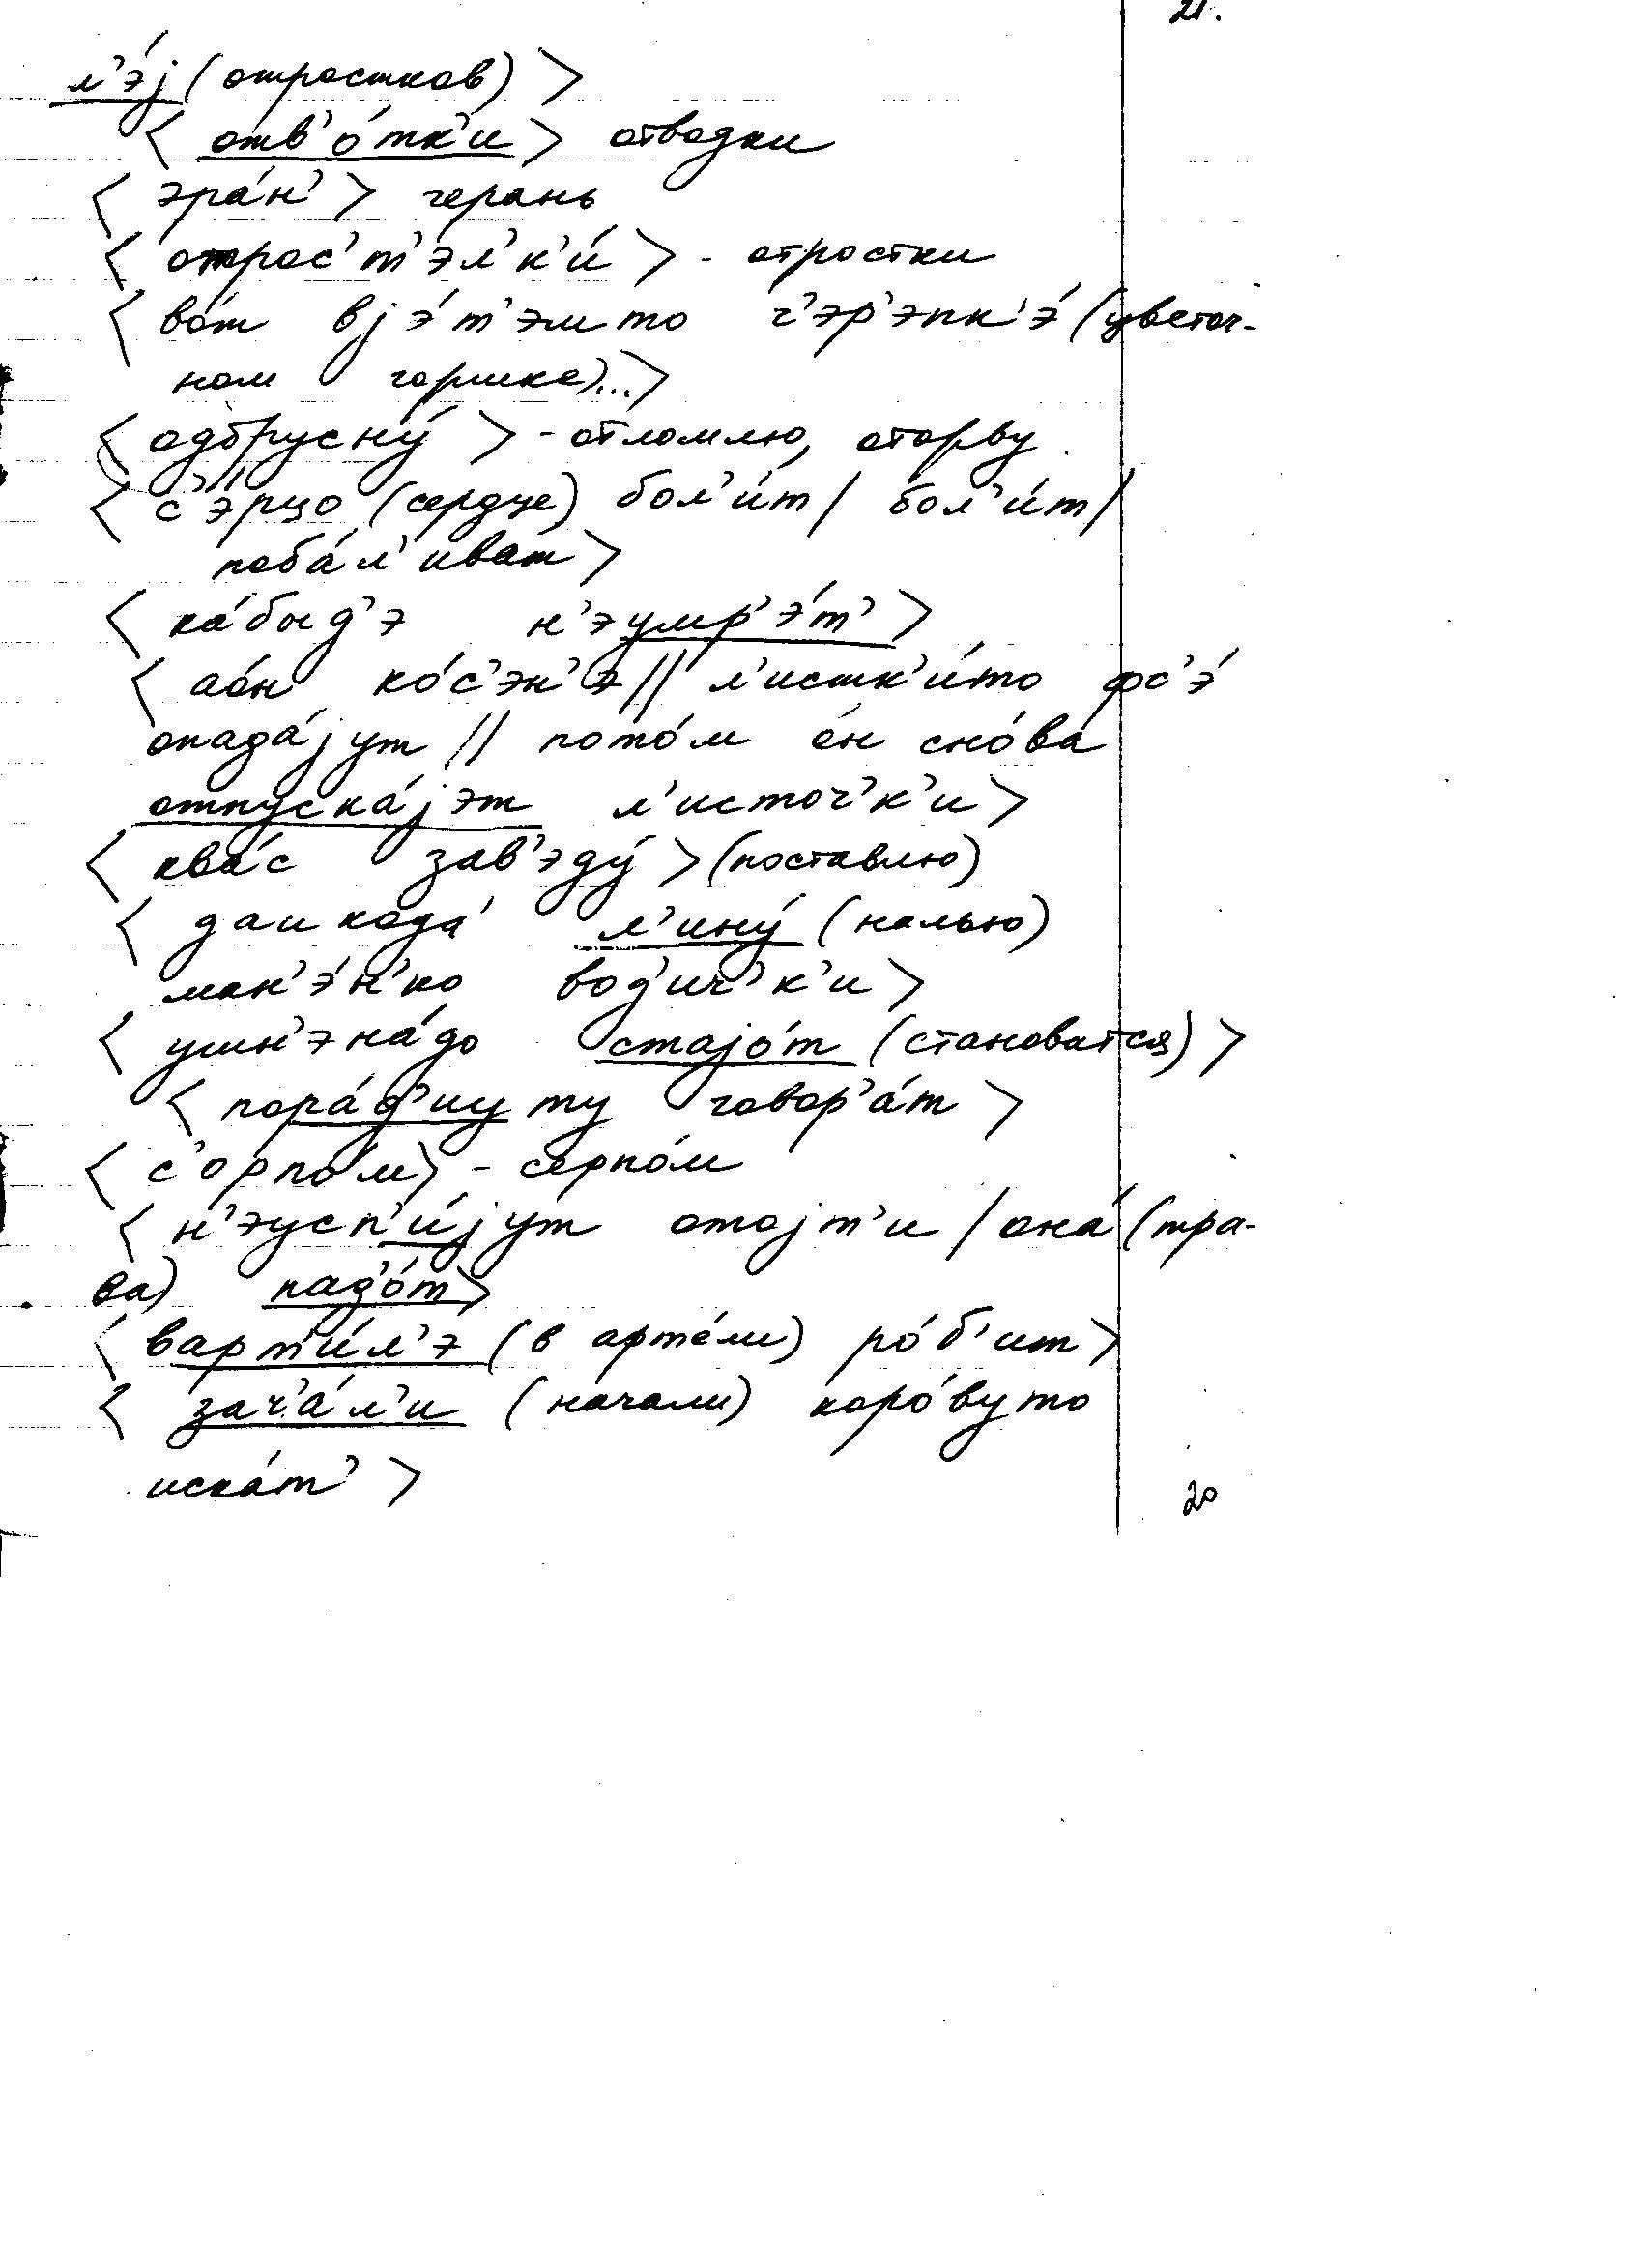 21.
л’э́j (отростков) >
< отв’о́тк’и > отводки
< эра́н’ > герань
< отрос’т’эл’к’и́ > - отростки
< во́т вjэ́т’эмто ч’эр’эпк’э́ (цветоч-
ном горшке)...>
< одбрусну́ > - отломлю, оторву
< с’э́рцо (сердце) бол’и́т / бол’и́т /
поба́л’иват >
< ка́быд’э н’эумр’э́т’ >
< ао́н ко́с’эн’э // л’истк’и́то фс’э́
опада́jут // пото́м о́н сно́ва
отпуска́jэт л’источ’к’и >
< ква́с зав’эду́ > (поставлю)
< даикода́ л’ину́ (налью)
ман’э́н’ко вод’ич’к’и >
< ушн’эна́до стаjо́т (становится) >
< пора́д’иуту говор’а́т >
< с’орпо́м > - серпо́м
< н’эусп’и́jут отоjт’и / она́ (тра-
ва) пад’о́т >
< варт’и́л’э (в арте́ли) ро́б’ит >
< зач’а́л’и (начали) коро́вуто
иска́т’ >
20